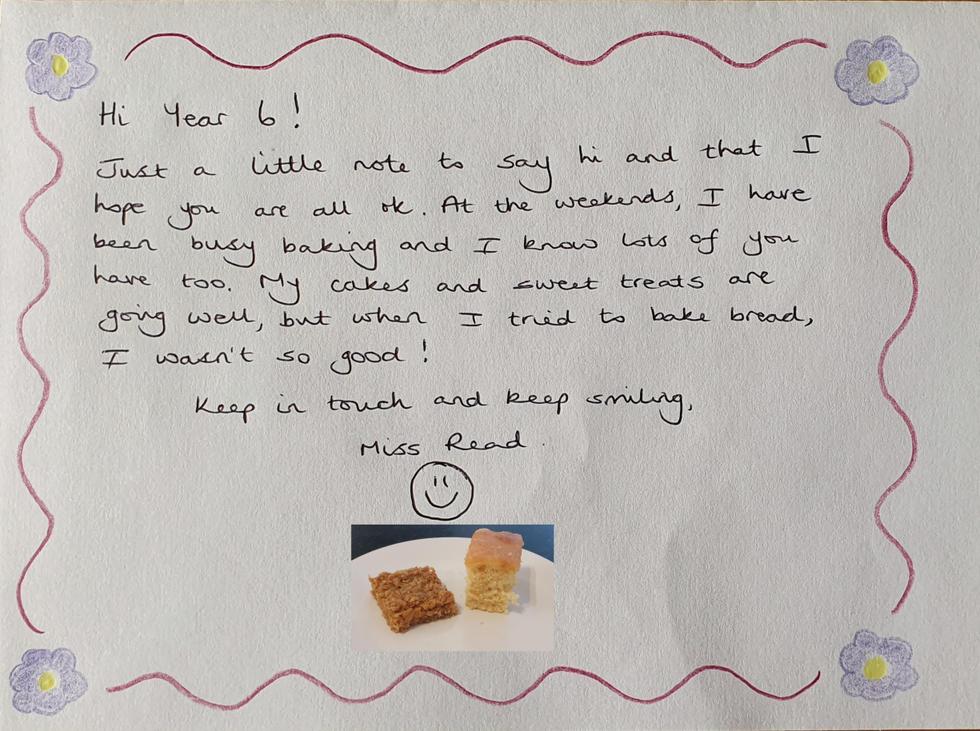 Hi Year 6!
Just a little note to say hi and that I
hope you are all ok. At the weekends, I have
been busy baking and I know lots of you
have too. My cakes and sweet treats are
going well, but when I tried to bake bread,
I wasn't so good!
Keep in touch and keep smiling,
Miss Read.